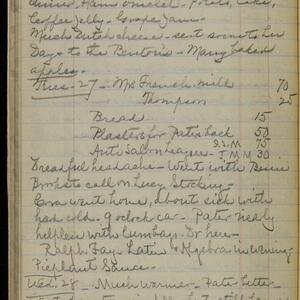 Dinner Ham omelet - Pota, Cake,
Coffee Jelly - Grape Jam -
Much Dutch cheese - sent some to Lu
Days to the Benton's - Many baked
apples -
Tues - 27 - Mrs French, milk 70
Thompson 25
Bread 15
Plasters for Pater's back 50
Anti Saloon League - S.L.M 75
I M M 30
Dreadful headache - Went with Bessie
to call on Lucy Stickney -
went home, about sick with
hard cold. 9 oclock car - Pater nearly
helpless with lumbago. Dr here -
Ralph Fay - Latin & Algebra in evening
Pieplant Sauce -
Wed. 28 - Much warmer - Pater better -